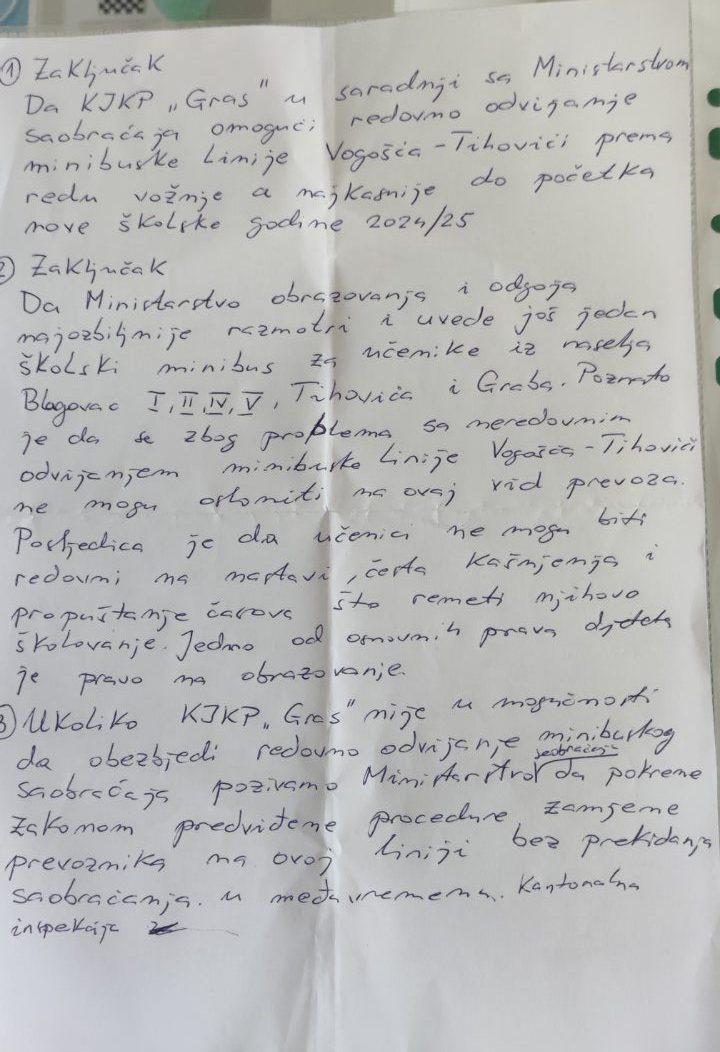 ① Zaključak
Da KJKP „Gras" u saradnji sa Ministarstvom
saobraćaja omogući redovno odvijanje
minibuske linije Vogošća - Tihovići prema
redu vožnje a najkasnije do početka
nove školske godine 2024/25
② Zaključak
Da Ministarstvo obrazovanja i odgoja
najozbiljnije razmotri i uvede još jedan
školski minibus za učenike iz naselja
Blagovac I, II, IV, V, Tihovića i Graba. Poznato
je da se zbog problema sa neredovnim
odvijanjem minibuske linije Vogošća - Tihovići
ne mogu osloniti na ovaj vid prevoza.
Posljedica je da učenici ne mogu biti
redovni na nastavi, česta kašnjenja i
propuštanje časova što remeti njihovo
školovanje. Jedno od osnovnih prava djeteta
je pravo na obrazovanje.
③ Ukoliko KJKP „Gras" nije u mogućnosti
da obezbjedi redovno odvijanje minibuskog
saobraćaja pozivamo Ministarstvo saobraćaja da pokrene
zakonom predviđene procedure zamjene
prevoznika na ovoj liniji bez prekidanja
saobraćanja. u međuvremenu. Kantonalna
inspekcija